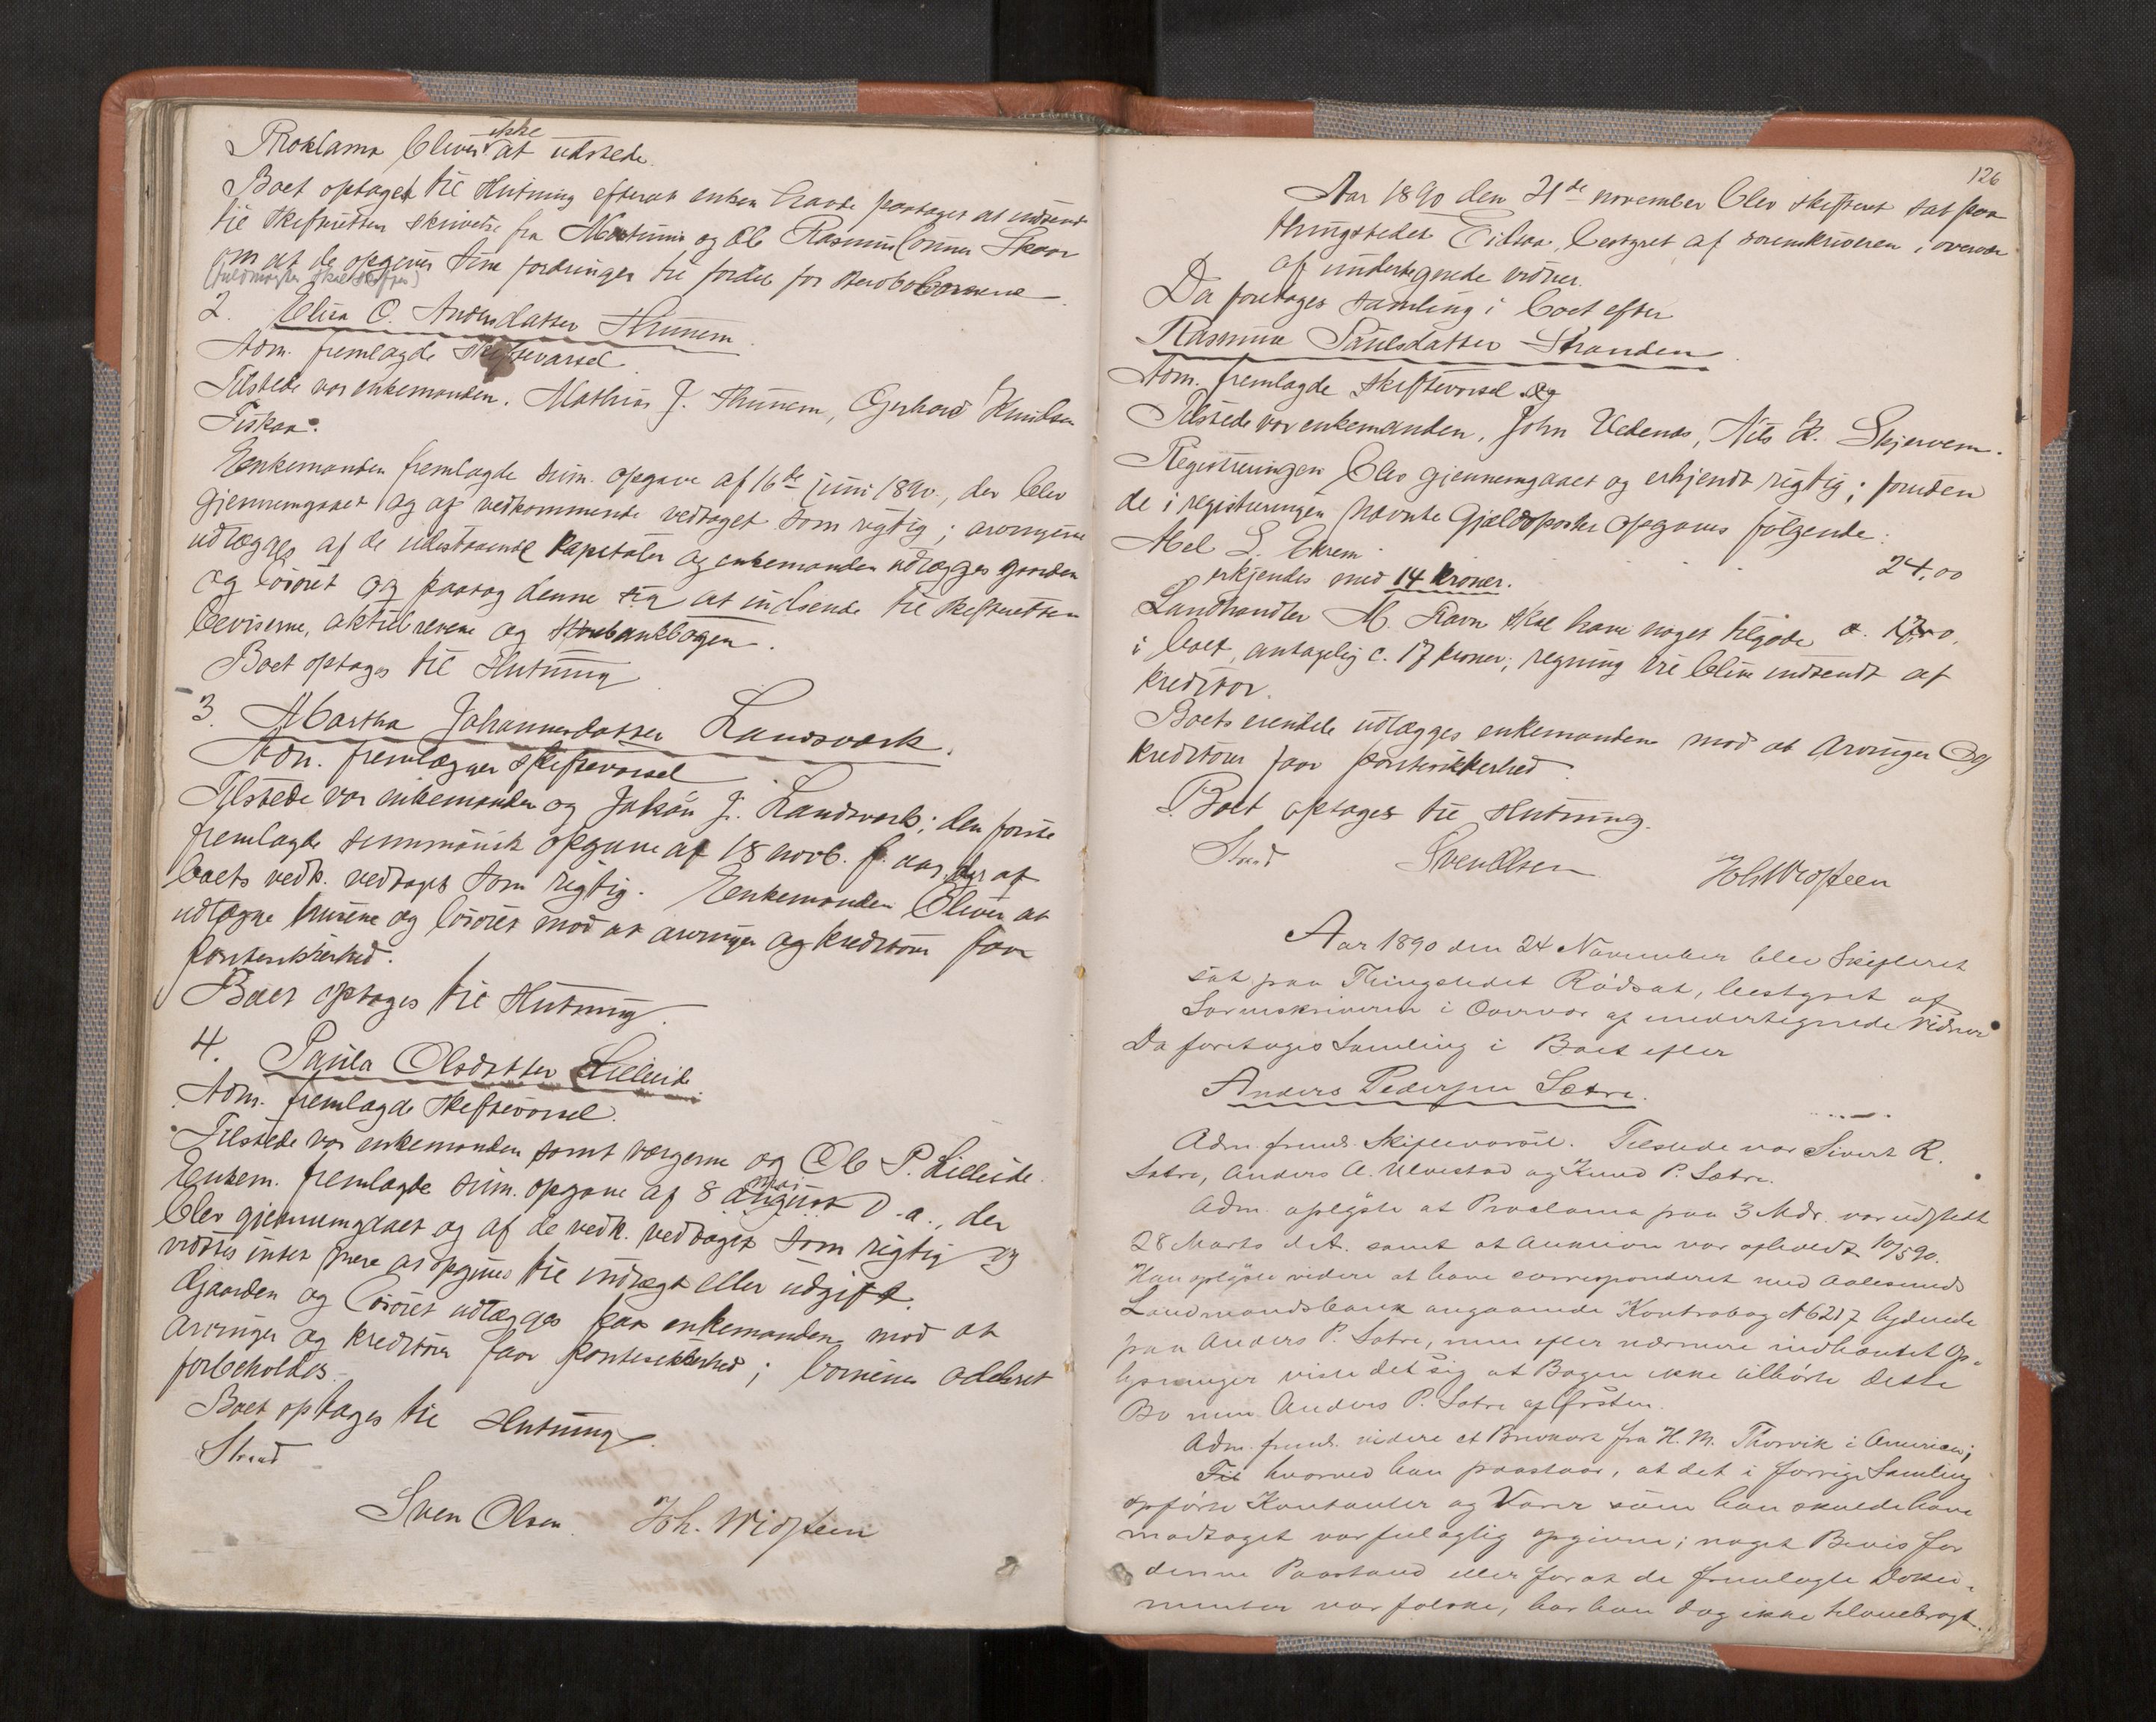 Proklama bliver ikke at udstede.
Boet optaget til slutning efterat enken havde paataget at indsende
til skifteretten skrivelse fra og Ole Rasmus Skaar
om at de opgiver sine fordringer til fordel for
(fuldmagter skal)
2. Elisa O. Andersdatter Thunem.
Adm. fremlagde skiftevarsel.
Tilstede var enkemanden. Mathias J. Thunem, Gerhard Knudsen
Fiskaa.
Enkemanden fremlagde sum. opgave af 16de juni 1890, der blev
gjennemgaaet og af vedkommende vedtaget som rigtig; arvingerne
udlægges af de udestaaende kapitaler og enkemanden udlægges gaarden
og løsøret og paatog denne sig at indsende til skifteretten
beviserne, aktiebrevene og
Boet optages til slutning
3. Martha Johannesdatter Landsværk.
Adm. fremlægger skiftevarsel
Tilstede var enkemanden og Jakob J. Landsverk; den første
fremlagde summarisk opgave af 18 novb. f. aar, der af
boets vedk. vedtages som rigtig. Enkemanden bliver at
udlægge husene og løsøret mod at arvinger og kreditorer faar
pantesikkerhed.
Boet optages til slutning.
4. Paula Olsdatter Lilleeide.
Adm. fremlagde skiftevarsel.
Tilstede var enkemanden samt værgerne og Ole P. Lilleeide.
Enkem. fremlagde sum. opgave af 8 august mai d. a., der
blev gjennemgaaet og af de vedk. vedtaget som rigtig og
vidstes intet mere at opgives til indtægt eller udgift.
Gaarden og løsøret udlægges paa enkemanden mod at
arvinger og kreditorer faar pantesikkerhed; børnenes odelsret
forbeholdes.
Boet optages til slutning.
Strand
Sven Olsen. Joh. Widsteen
126
Aar 1890 den 21de november blev skifteret sat paa
thingstedet Eidsaa, bestyret af sorenskriveren i overvær
af undertegnede vidner.
Da foretages samling i boet efter
Rasmine Paulsdatter Stranden.
Adm. fremlagde skiftevarsel. Og
Tilstede var enkemanden, John Vedenes, Nils K. Skjervem.
Registreringen blev gjennemgaaet og erkjendt rigtig; foruden
de i registreringen nævnte gjældsposter opgaves følgende:
Abel L. Ekrem . . . . . 24,00
erkjendes med 14 kroner.
Landhandler M. Ravn skal have noget tilgode
i boet, antagelig c. 17 kroner; regning vil blive indsendt af
kreditor.
Boets eiendele udlægges enkemanden mod at arvinger og
kreditorer faar pantesikkerhed.
Boet optages til slutning.
Strand Sven Olsen Joh Widsteen
Aar 1890 den 24 November blev Skifteret
sat paa Thingstedet Rødsæt, bestyret af
Sorenskriveren i Overvær af undertegnede Vidner
Da foretages Samling i Boet efter
Anders Pedersen Sætre.
Adm. freml. Skiftevarsel. Tilstede var Sivert R.
Sætre, Anders A. Ulvestad og Knud P. Sætre.
Adm. oplyste at Proclama paa 3 Mdr. var udstedt
28 Marts d.A. samt at Auktion var afholdt 10/5 90.
Han oplyste videre at have correspondert med Aalesunds
Landmandsbank angaaende Kontrabog N 6217 lydende
paa Anders P. Sætre, men efter nærmere indhentet Op-
lysninger viste det sig at Bogen ikke tilhørte dette
Bo men Anders P. Sætre af Ørsten.
Adm. freml. videre et Brevkort fra H. M. Thorvik i America;
Til hvorved han paastaar, at det i forrige Samling
opførte Kontanter og Varer som han skulde have
modtaget var feilagtig opgivne; noget Bevis for
denne Paastand eller for at de fremlagte Doku-
menter var falske, har han dog ikke tilveiebragt.